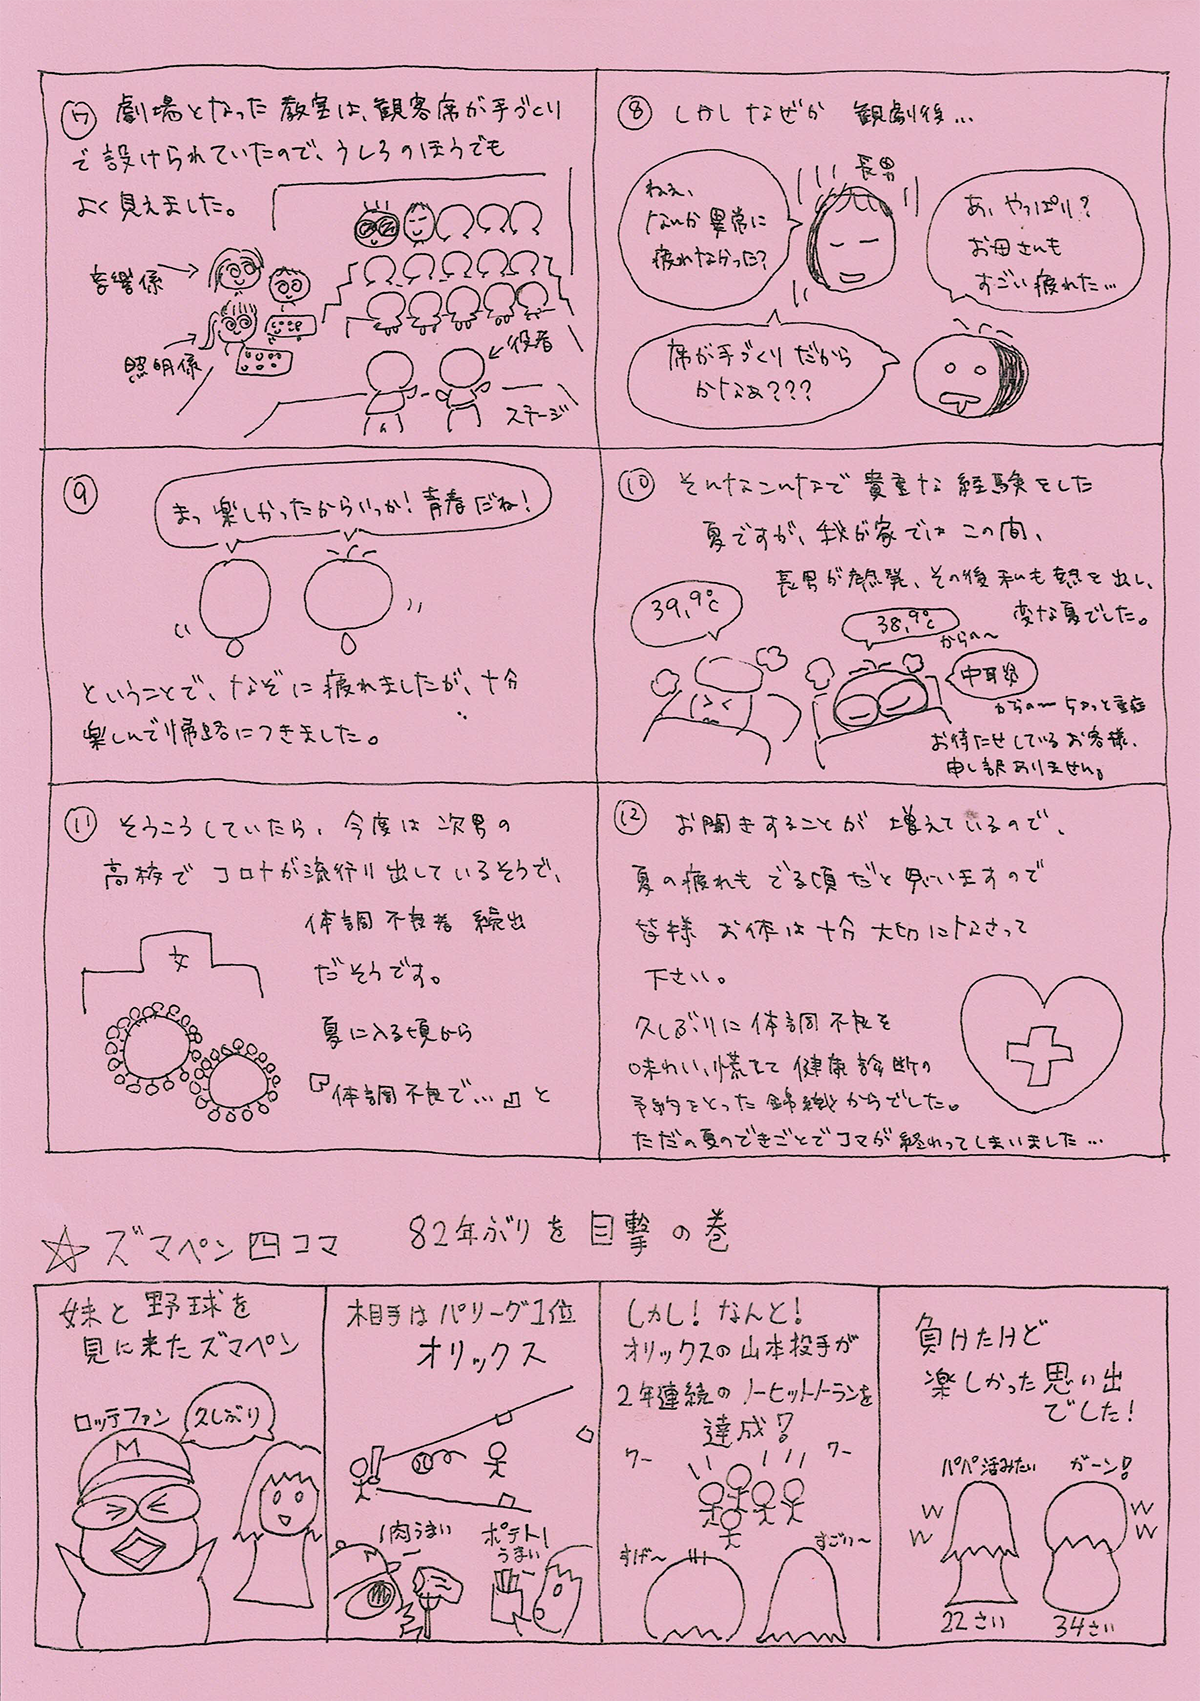 ⑦ 劇場となった教室は、観客席が手づくり
で設けられていたので、うしろのほうでも
よく見えました。
音響係
照明係
役者
ステージ
⑧ しかしなぜか 観劇後…
長男
ねぇ、
なんか異常に
疲れなかった?
あ、やっぱり?
お母さんも
すごい疲れた…
席が手づくりだから
かなぁ???
⑨
まっ楽しかったからいっか!青春だね!
ということで、なぞに疲れましたが、十分
楽しんで帰路につきました。
⑩ そんなこんなで貴重な経験をした
夏ですが、我が家ではこの間、
長男が発熱、その後私も熱を出し、
変な夏でした。
39,9℃
38,9℃
からの〜
中耳炎
からの〜ちょっと重症
お待たせしているお客様、
申し訳ありません。
⑪ そうこうしていたら、今度は次男の
高校でコロナが流行り出しているそうで、
体調不良者 続出
だそうです。
夏に入る頃から
『体調不良で…』と
文
⑫ お聞きすることが増えているので、
夏の疲れもでる頃だと思いますので
皆様 お体は十分大切になさって
下さい。
久しぶりに体調不良を
味わい、慌てて健康診断の
予約をとった錦織からでした。
ただの夏のできごとでコマが終わってしまいました…
☆ズマペン四コマ 82年ぶりを目撃の巻
妹と野球を
見に来たズマペン
ロッテファン
久しぶり
M
相手はパリーグ1位
オリックス
肉うまい
ポテト
うまい
M
しかし!なんと!
オリックスの山本投手が
2年連続のノーヒットノーランを
達成!
ワー
ワー
すげ〜
すごい〜
負けたけど
楽しかった思い出
でした!
パパ活みたい
ガーン!
W
W
W
W
22さい
34さい